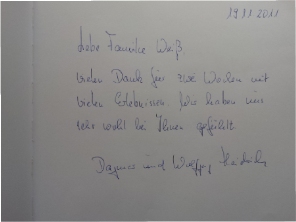 19.11.2011
Liebe Familie Weiß
vielen Dank für zwei Wochen mit
vielen Erlebnissen. Wir haben uns
sehr wohl bei Ihnen gefühlt.
Dagmar und Wolfgang